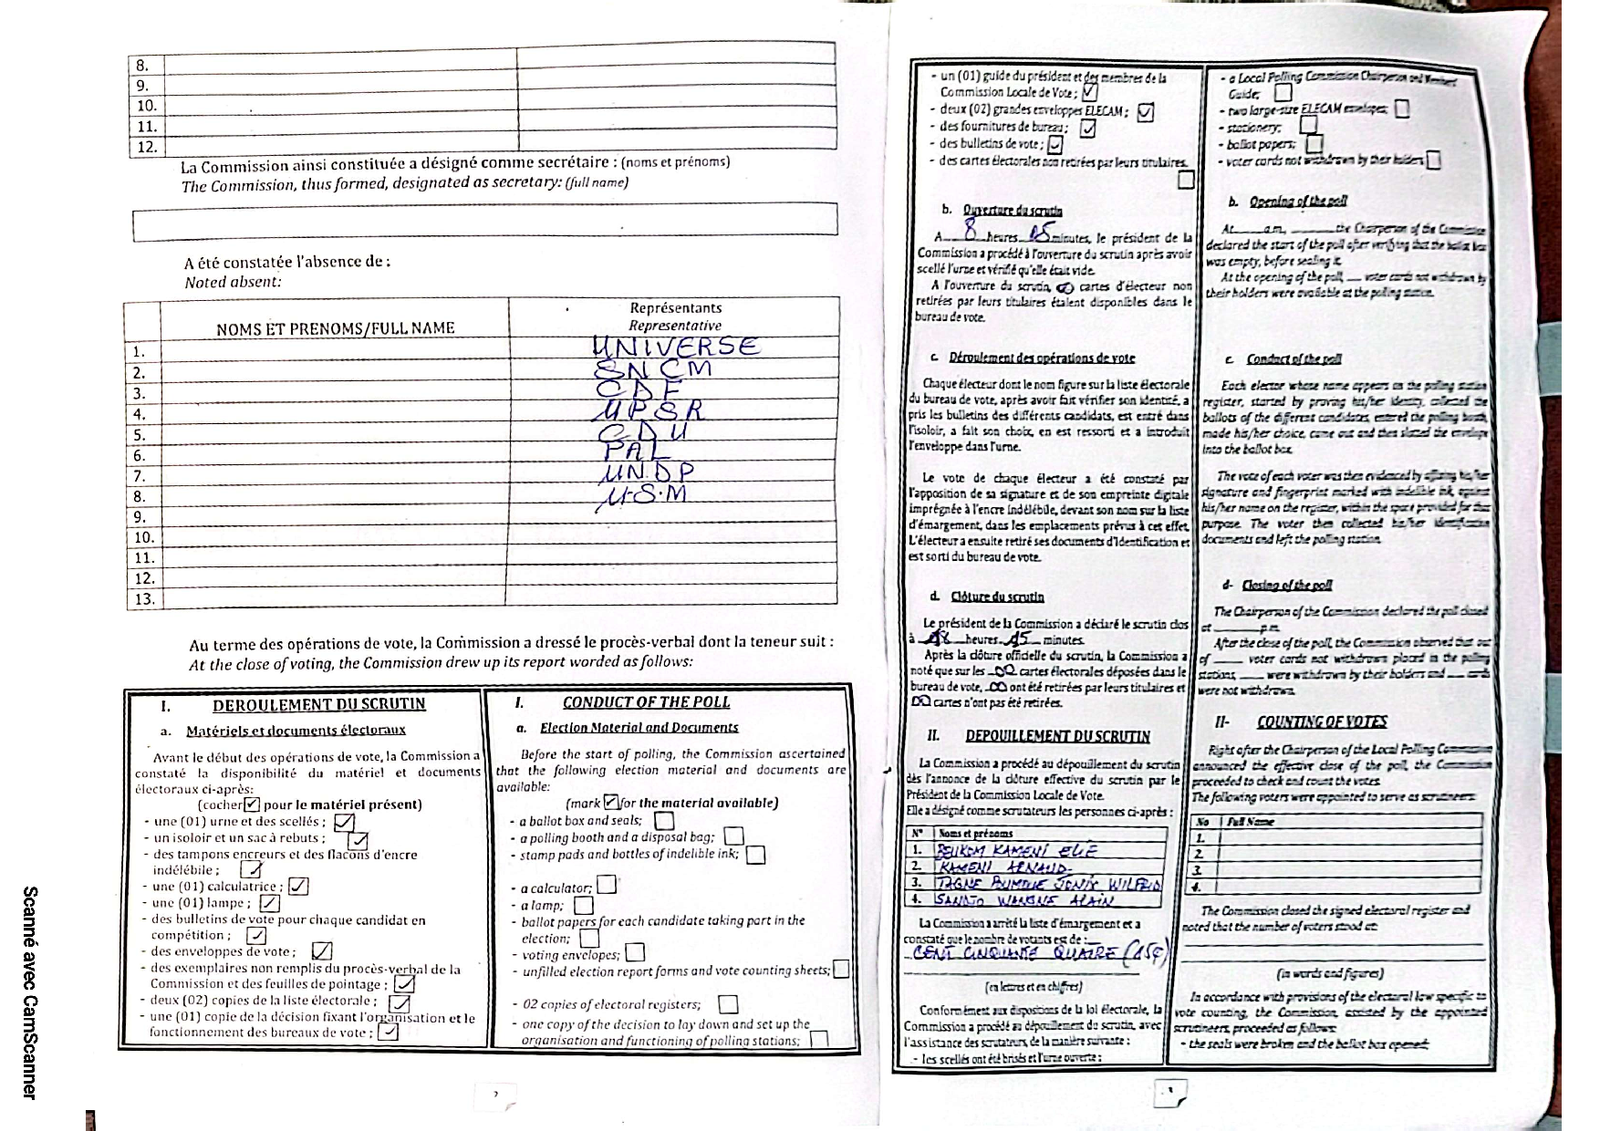 8.
9.
10.
11.
12.
La Commission ainsi constituée a désigné comme secrétaire : (noms et prénoms)
The Commission, thus formed, designated as secretary: (full name)
A été constatée l'absence de :
Noted absent:
NOMS ET PRENOMS/FULL NAME
Représentants
Representative
1. UNIVERSE
2. SNCM
3. CDF
4. MPSR
5. CDU
6. PAL
7. UNDP
8. U.S.M
9.
10.
11.
12.
13.
Au terme des opérations de vote, la Commission a dressé le procès-verbal dont la teneur suit :
At the close of voting, the Commission drew up its report worded as follows:
I. DEROULEMENT DU SCRUTIN
a. Matériels et documents électoraux
Avant le début des opérations de vote, la Commission a
constaté la disponibilité du matériel et documents
électoraux ci-après:
(cocher ☑ pour le matériel présent)
- une (01) urne et des scellés ; ☑
- un isoloir et un sac à rebuts ; ☑
- des tampons encreurs et des flacons d'encre
indélébile ; ☑
- une (01) calculatrice ; ☑
- une (01) lampe ; ☑
- des bulletins de vote pour chaque candidat en
compétition ; ☑
- des enveloppes de vote ; ☑
- des exemplaires non remplis du procès-verbal de la
Commission et des feuilles de pointage ; ☑
- deux (02) copies de la liste électorale ; ☑
- une (01) copie de la décision fixant l'organisation et le
fonctionnement des bureaux de vote ; ☑
I. CONDUCT OF THE POLL
a. Election Material and Documents
Before the start of polling, the Commission ascertained
that the following election material and documents are
available:
(mark ☑ for the material available)
- a ballot box and seals; ☐
- a polling booth and a disposal bag; ☐
- stamp pads and bottles of indelible ink; ☐
- a calculator; ☐
- a lamp; ☐
- ballot papers for each candidate taking part in the
election; ☐
- voting envelopes; ☐
- unfilled election report forms and vote counting sheets; ☐
- 02 copies of electoral registers; ☐
- one copy of the decision to lay down and set up the
organisation and functioning of polling stations; ☐
2
- un (01) guide du président et des membres de la
Commission Locale de Vote ; ☑
- deux (02) grandes enveloppes ELECAM ; ☑
- des fournitures de bureau ; ☑
- des bulletins de vote ; ☑
- des cartes électorales non retirées par leurs titulaires.
☐
b. Ouverture du scrutin
A 8 heures 15 minutes, le président de la
Commission a procédé à l'ouverture du scrutin après avoir
scellé l'urne et vérifié qu'elle était vide.
A l'ouverture du scrutin, cartes d'électeur non
retirées par leurs titulaires étaient disponibles dans le
bureau de vote.
c. Déroulement des opérations de vote
Chaque électeur dont le nom figure sur la liste électorale
du bureau de vote, après avoir fait vérifier son identité, a
pris les bulletins des différents candidats, est entré dans
l'isoloir, a fait son choix, en est ressorti et a introduit
l'enveloppe dans l'urne.
Le vote de chaque électeur a été constaté par
l'apposition de sa signature et de son empreinte digitale
imprégnée à l'encre indélébile, devant son nom sur la liste
d'émargement, dans les emplacements prévus à cet effet.
L'électeur a ensuite retiré ses documents d'identification et
est sorti du bureau de vote.
d. Clôture du scrutin
Le président de la Commission a déclaré le scrutin clos
à 18 heures 15 minutes.
Après la clôture officielle du scrutin, la Commission a
noté que sur les 00 cartes électorales déposées dans le
bureau de vote, 00 ont été retirées par leurs titulaires et
00 cartes n'ont pas été retirées.
II. DEPOUILLEMENT DU SCRUTIN
La Commission a procédé au dépouillement du scrutin
dès l'annonce de la clôture effective du scrutin par le
Président de la Commission Locale de Vote.
Elle a désigné comme scrutateurs les personnes ci-après :
N° Noms et prénoms
1. KAMENI ELIE
2. KAMENI ARNAUD
3. TAGNE WILFRID
4. ALAIN
La Commission a arrêté la liste d'émargement et a
constaté que le nombre de votants est de :
CENT CINQUANTE QUATRE (154)
(en lettres et en chiffres)
Conformément aux dispositions de la loi électorale, la
Commission a procédé au dépouillement du scrutin, avec
l'assistance des scrutateurs, de la manière suivante :
- les scellés ont été brisés et l'urne ouverte ;
- a Local Polling Commission Chairperson and Members'
Guide; ☐
- two large-size ELECAM envelopes; ☐
- stationery; ☐
- ballot papers; ☐
- voter cards not withdrawn by their holders ☐
b. Opening of the poll
At a.m, the Chairperson of the Commission
declared the start of the poll after verifying that the ballot box
was empty, before sealing it.
At the opening of the poll, voter cards not withdrawn by
their holders were available at the polling station.
c. Conduct of the poll
Each elector whose name appears on the polling station
register, started by proving his/her identity, collected the
ballots of the different candidates, entered the polling booth,
made his/her choice, came out and then slotted the envelope
into the ballot box.
The vote of each voter was then evidenced by affixing his/her
signature and fingerprint marked with indelible ink, against
his/her name on the register, within the space provided for that
purpose. The voter then collected his/her identification
documents and left the polling station.
d- Closing of the poll
The Chairperson of the Commission declared the poll closed
at p.m.
After the close of the poll, the Commission observed that out
of voter cards not withdrawn placed in the polling
stations, were withdrawn by their holders and cards
were not withdrawn.
II- COUNTING OF VOTES
Right after the Chairperson of the Local Polling Commission
announced the effective close of the poll, the Commission
proceeded to check and count the votes.
The following voters were appointed to serve as scrutineers:
No Full Name
1.
2.
3.
4.
The Commission closed the signed electoral register and
noted that the number of voters stood at:
(in words and figures)
In accordance with provisions of the electoral law specific to
vote counting, the Commission, assisted by the appointed
scrutineers, proceeded as follows:
- the seals were broken and the ballot box opened;
3
Scanné avec CamScanner